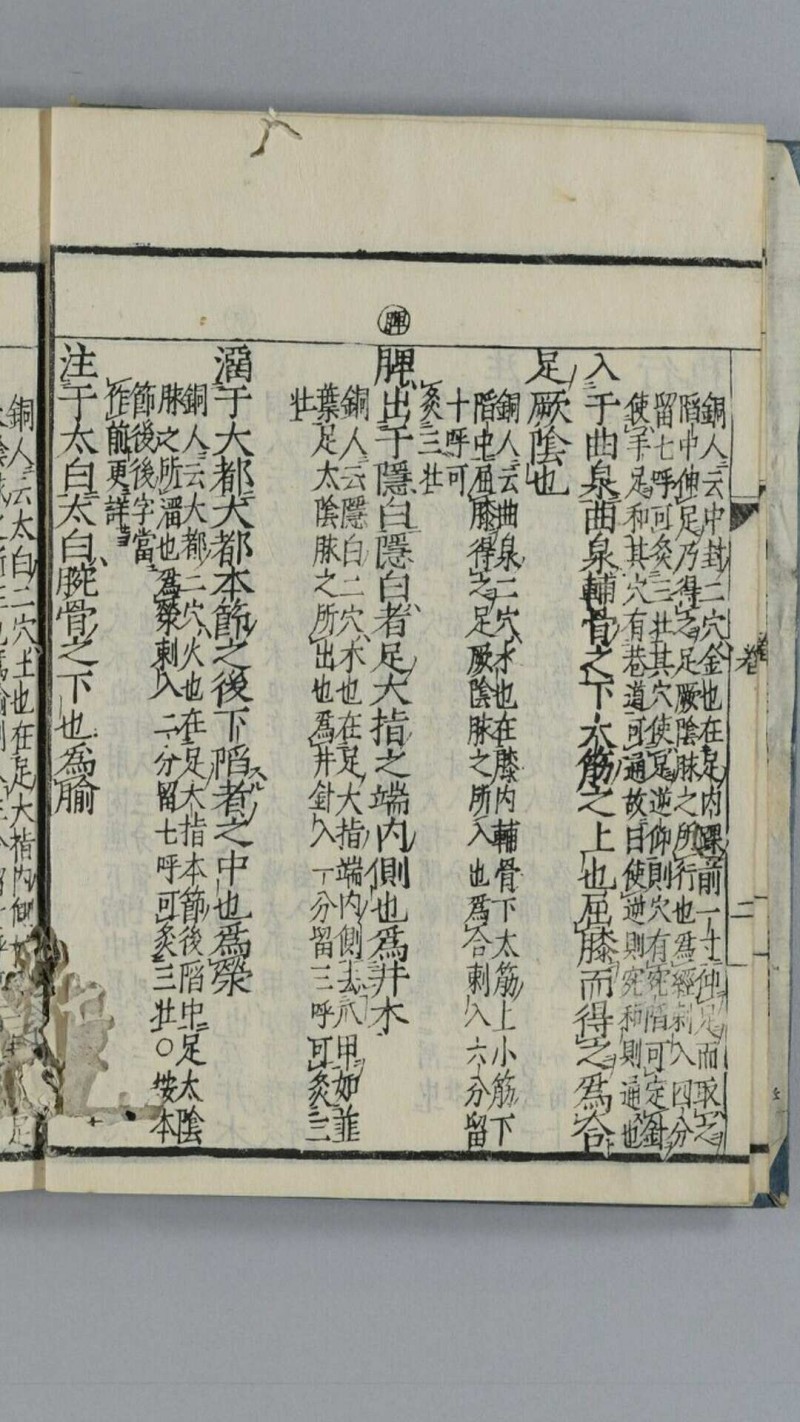 銅人云中封二穴金也在足内踝前一寸仰足而取之
陷中伸足乃得之足厥陰脉之所行也爲經刺入四分
留七呼可灸三壯其穴使足逆仰則穴有陷可定針
使手足和其穴有巷道可通故曰使逆則穴和則通也
入于曲泉曲泉輔骨之下大筋之上也屈膝而得之爲合
足厥陰也
銅人云曲泉二穴水也在膝内輔骨下大筋上小筋下
陷中屈膝得之足厥陰脉之所入也爲合刺入六分留
十呼可
灸三壯
脾
脾出于隱白隱白者足大指之端内側也爲井木
銅人云隱白二穴木也在足大指端内側去爪甲如韭
葉足太陰脉之所出也爲井針入一分留三呼可灸三
壯
溜于大都大都本節之後下陷者之中也爲滎
銅人云大都二穴火也在足大指本節後陷中足太陰
脉之所溜也爲滎刺入二分留七呼可灸三壯○按本
節後後字當
作前更詳
注于太白太白腕骨之下也爲腧
銅人云太白二穴土也在足大指内側
卷
二